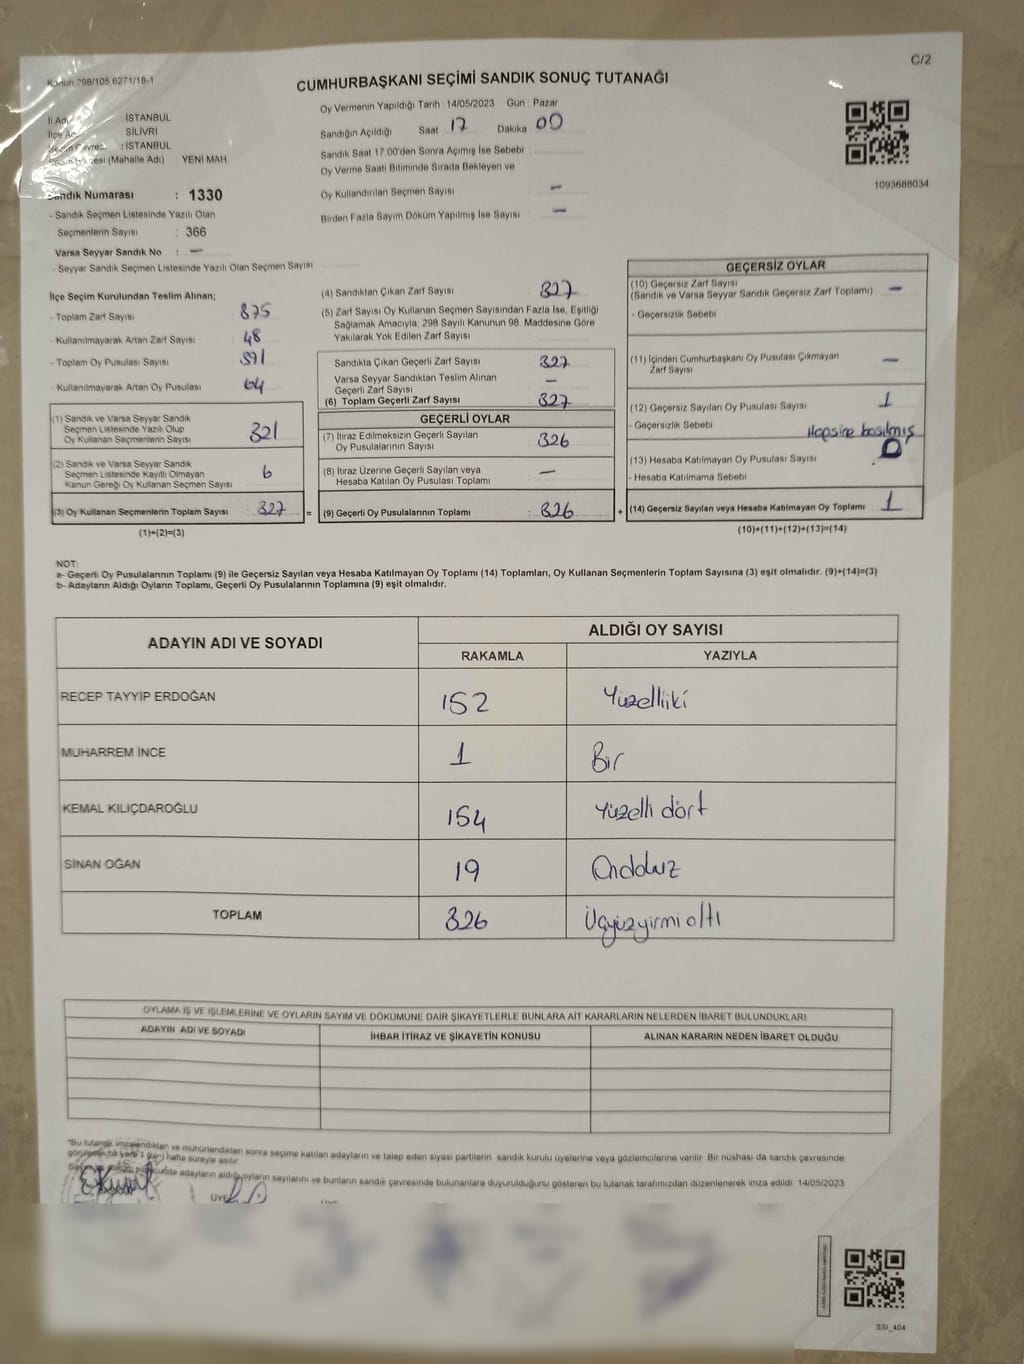 C/2
Kanun 298/105,6271/18-1
CUMHURBAŞKANI SEÇİMİ SANDIK SONUÇ TUTANAĞI
İl Adı : İSTANBUL
İlçe Adı : SİLİVRİ
Seçim Çevresi : İSTANBUL
(Mahalle Adı) : YENİ MAH.
Sandık Numarası : 1330
- Sandık Seçmen Listesinde Yazılı Olan
Seçmenlerin Sayısı : 366
Varsa Seyyar Sandık No : —
- Seyyar Sandık Seçmen Listesinde Yazılı Olan Seçmen Sayısı
Oy Vermenin Yapıldığı Tarih : 14/05/2023 Gün : Pazar
Sandığın Açıldığı Saat 17 Dakika 00
Sandık Saat 17:00'den Sonra Açımış İse Sebebi
Oy Verme Saati Bitiminde Sırada Bekleyen ve
Oy Kullandırılan Seçmen Sayısı —
Birden Fazla Sayım Döküm Yapılmış İse Sayısı —
1093688034
İlçe Seçim Kurulundan Teslim Alınan;
- Toplam Zarf Sayısı : 375
- Kullanılmayarak Artan Zarf Sayısı : 48
- Toplam Oy Pusulası Sayısı : 391
- Kullanılmayarak Artan Oy Pusulası : 64
(1) Sandık ve Varsa Seyyar Sandık
Seçmen Listesinde Yazılı Olup
Oy Kullanan Seçmenlerin Sayısı 321
(2) Sandık ve Varsa Seyyar Sandık
Seçmen Listesinde Kayıtlı Olmayan
Kanun Gereği Oy Kullanan Seçmen Sayısı 6
(3) Oy Kullanan Seçmenlerin Toplam Sayısı : 327 =
(1)+(2)=(3)
(4) Sandıktan Çıkan Zarf Sayısı : 327
(5) Zarf Sayısı Oy Kullanan Seçmen Sayısından Fazla İse, Eşitliği
Sağlamak Amacıyla; 298 Sayılı Kanunun 98. Maddesine Göre
Yakılarak Yok Edilen Zarf Sayısı
Sandıkta Çıkan Geçerli Zarf Sayısı : 327
Varsa Seyyar Sandıktan Teslim Alınan
Geçerli Zarf Sayısı —
(6) Toplam Geçerli Zarf Sayısı : 327
GEÇERLİ OYLAR
(7) İtiraz Edilmeksizin Geçerli Sayılan
Oy Pusulasının Sayısı : 326
(8) İtiraz Üzerine Geçerli Sayılan veya
Hesaba Katılan Oy Pusulası Toplamı : —
(9) Geçerli Oy Pusulalarının Toplamı : 326 +
GEÇERSİZ OYLAR
(10) Geçersiz Zarf Sayısı
(Sandık ve Varsa Seyyar Sandık Geçersiz Zarf Toplamı) —
- Geçersizlik Sebebi :
(11) İçinden Cumhurbaşkanı Oy Pusulası Çıkmayan
Zarf Sayısı —
(12) Geçersiz Sayılan Oy Pusulası Sayısı : 1
- Geçersizlik Sebebi : Hepsine basılmış
(13) Hesaba Katılmayan Oy Pusulası Sayısı : 0
- Hesaba Katılmama Sebebi :
(14) Geçersiz Sayılan veya Hesaba Katılmayan Oy Toplamı : 1
(10)+(11)+(12)+(13)=(14)
NOT:
a- Geçerli Oy Pusulalarının Toplamı (9) ile Geçersiz Sayılan veya Hesaba Katılmayan Oy Toplamı (14) Toplamları, Oy Kullanan Seçmenlerin Toplam Sayısına (3) eşit olmalıdır. (9)+(14)=(3)
b- Adayların Aldığı Oyların Toplamı, Geçerli Oy Pusulalarının Toplamına (9) eşit olmalıdır.
ADAYIN ADI VE SOYADI ALDIĞI OY SAYISI
RAKAMLA YAZIYLA
RECEP TAYYİP ERDOĞAN 152 Yüzelliiki
MUHARREM İNCE 1 Bir
KEMAL KILIÇDAROĞLU 154 Yüzelli dört
SİNAN OĞAN 19 Ondokuz
TOPLAM 326 Üçyüzyirmialtı
OYLAMA İŞ VE İŞLEMLERİNE VE OYLARIN SAYIM VE DÖKÜMÜNE DAİR ŞİKAYETLERLE BUNLARA AİT KARARLARIN NELERDEN İBARET BULUNDUKLARI
ADAYIN ADI VE SOYADI İHBAR İTİRAZ VE ŞİKAYETİN KONUSU ALINAN KARARIN NEDEN İBARET OLDUĞU
*Bu tutanak imzalandıktan ve mühürlendikten sonra seçime katılan adayların ve talep eden siyasi partilerin sandık kurulu üyelerine veya gözlemcilerine verilir. Bir nüshası da sandık çevresinde
görülebilir bir yere 1 (bir) hafta süreyle asılır.
adayların aldığı oyların sayılarını ve bunların sandık çevresinde bulunanlara duyurulduğunu gösteren bu tutanak tarafımızdan düzenlenerek imza edildi. 14/05/2023
ÜYE
SSI_404